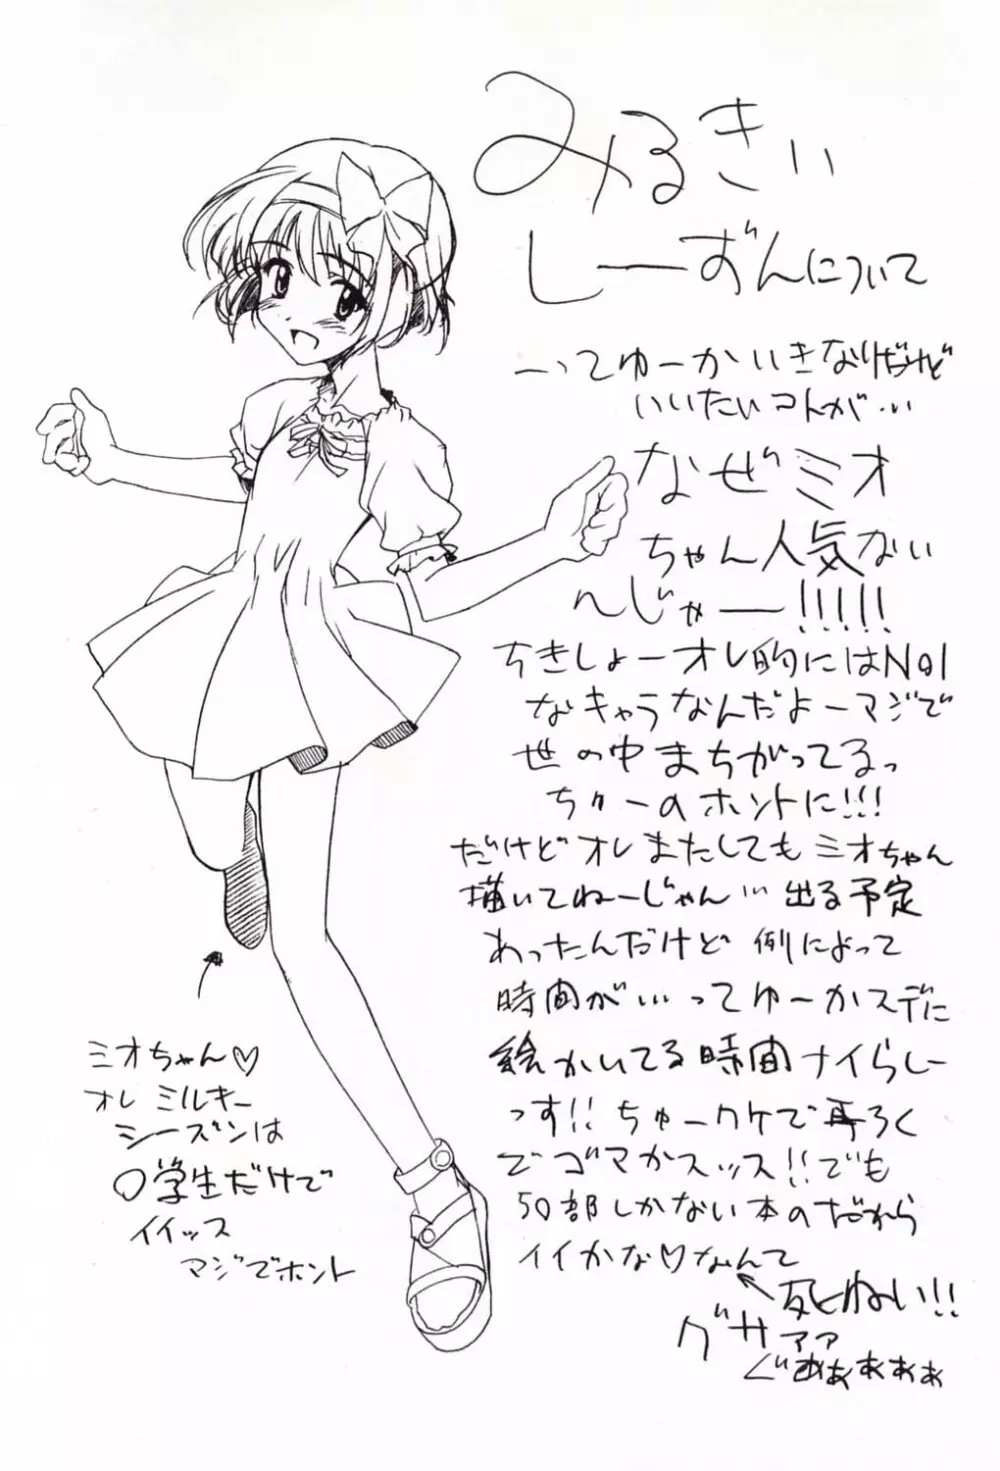 みるきい
しーずんについて
―ってゆーかいきなりだけど
いいたいコトが…
なぜミオ
ちゃん人気ない
んじゃー!!!!!
ちきしょーオレ的にはNo1
なキャラなんだよーマジで
世の中まちがってるっ
ちゅーのホントに!!!
だけどオレまたしてもミオちゃん
描いてねーじゃん… 出る予定
あったんだけど 例によって
時間が…ってゆーかスデに
絵かいてる時間ナイらしー
っす!! ちゅーワケで再ろく
でゴマかスッス!!でも
50部しかない本のだから
イイかな♡なんて
←死ねい!!
グサァァ
ぐああぁぁぁぁ
ミオちゃん♡
オレ ミルキー
シーズンは
〇学生だけで
イイッス
マジでホント